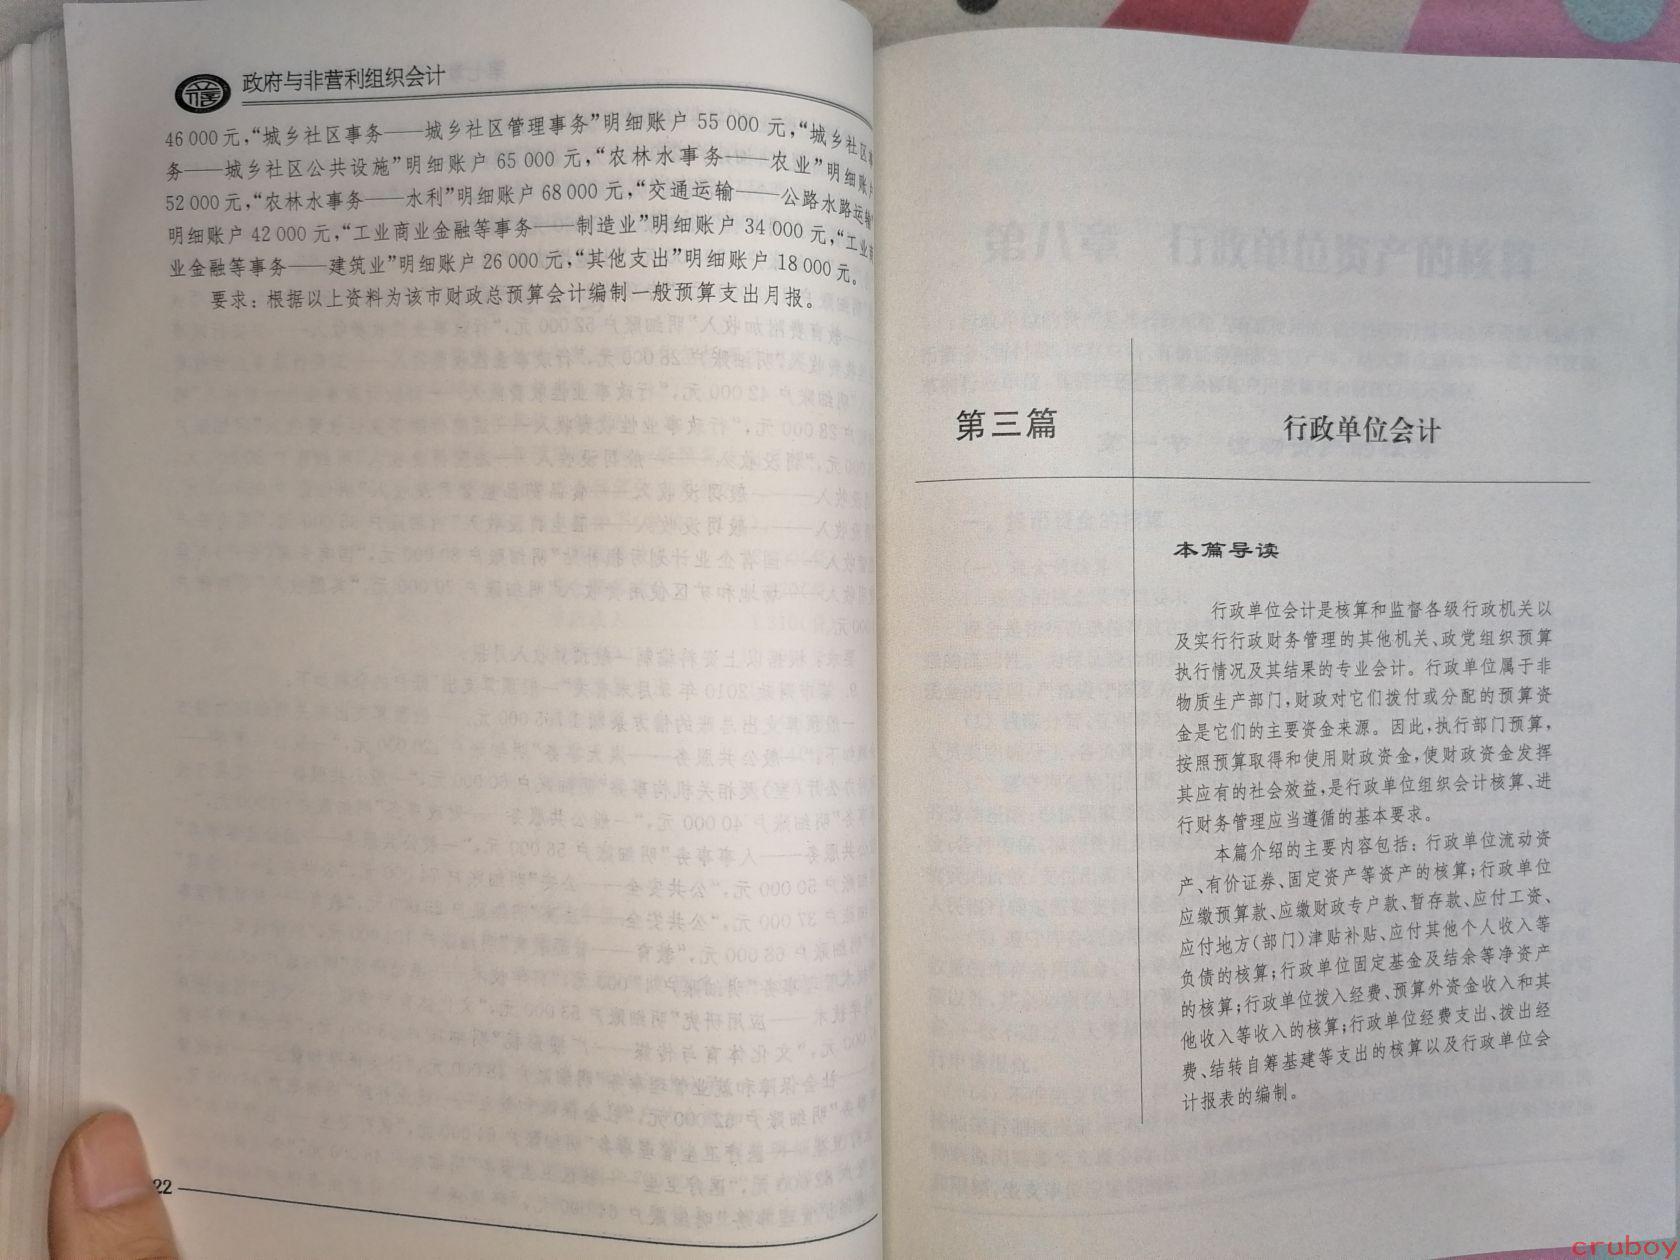 政府与非营利组织会计
46 000元,“城乡社区事务——城乡社区管理事务”明细账户 55 000 元,“城乡社区事
务——城乡社区公共设施”明细账户 65 000 元,“农林水事务——农业”明细账户
52 000元,“农林水事务——水利”明细账户 68 000 元,“交通运输——公路水路运输”
明细账户 42 000 元,“工业商业金融等事务——制造业”明细账户 34 000 元,“工业商
业金融等事务——建筑业”明细账户 26 000 元,“其他支出”明细账户 18 000 元。
要求：根据以上资料为该市财政总预算会计编制一般预算支出月报。
22
第三篇 行政单位会计
本篇导读
行政单位会计是核算和监督各级行政机关以
及实行行政财务管理的其他机关、政党组织预算
执行情况及其结果的专业会计。行政单位属于非
物质生产部门,财政对它们拨付或分配的预算资
金是它们的主要资金来源。因此,执行部门预算,
按照预算取得和使用财政资金,使财政资金发挥
其应有的社会效益,是行政单位组织会计核算、进
行财务管理应当遵循的基本要求。
本篇介绍的主要内容包括：行政单位流动资
产、有价证券、固定资产等资产的核算;行政单位
应缴预算款、应缴财政专户款、暂存款、应付工资、
应付地方(部门)津贴补贴、应付其他个人收入等
负债的核算;行政单位固定基金及结余等净资产
的核算;行政单位拨入经费、预算外资金收入和其
他收入等收入的核算;行政单位经费支出、拨出经
费、结转自筹基建等支出的核算以及行政单位会
计报表的编制。
cruboy